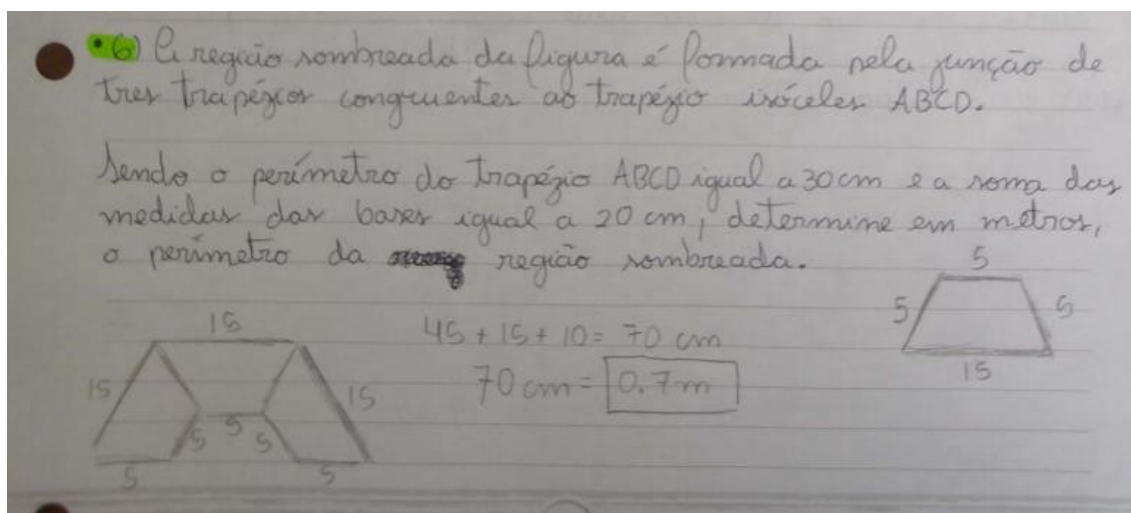 • 6) A região sombreada da figura é formada pela junção de
tres trapézios congruentes ao trapézio isóceles ABCD.
Sendo o perímetro do trapézio ABCD igual a 30 cm e a soma das
medidas das bases igual a 20 cm, determine em metros,
o perímetro da região sombreada.
5
5 5
15
15
45 + 15 + 10 = 70 cm
70 cm = 0.7 m
15 15
5 5 5
5 5